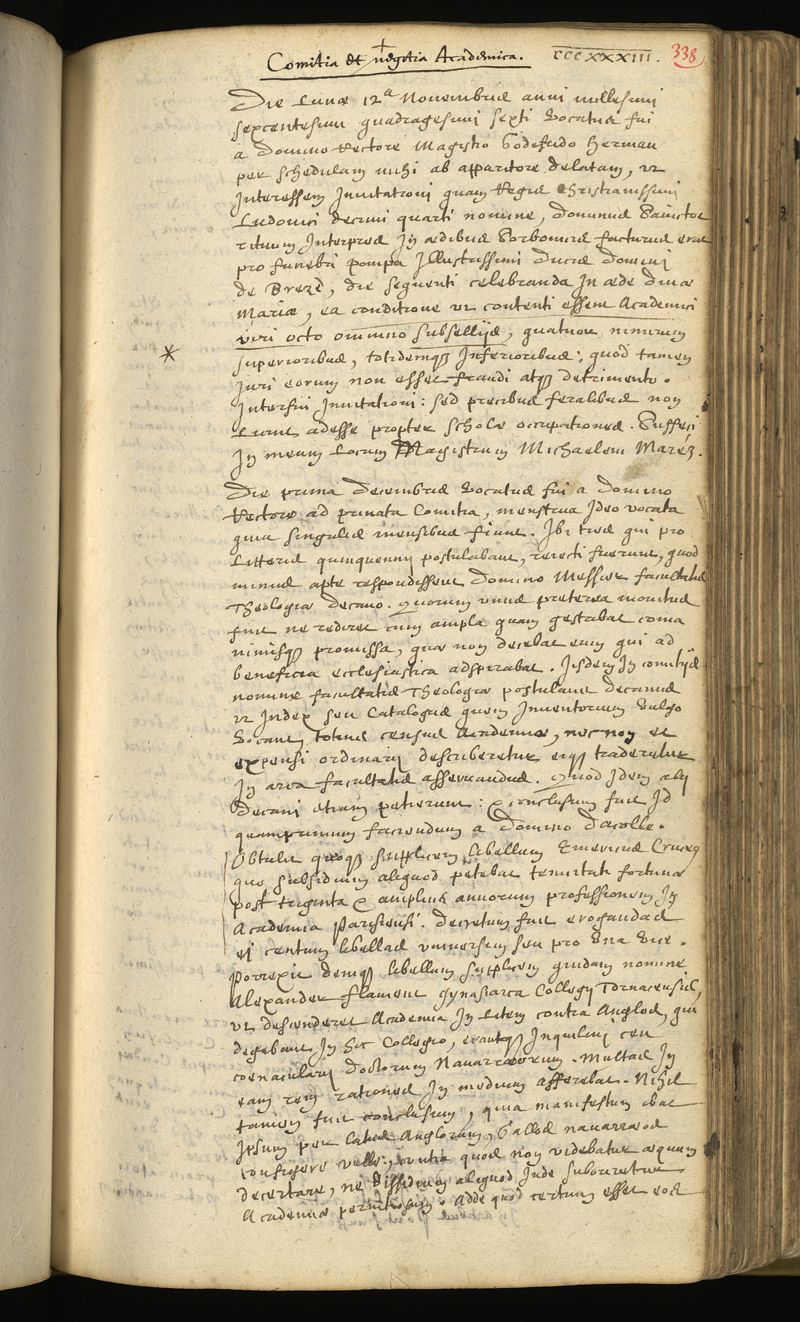 Comitia et negotia Academica. CCCXXXIII. 338
Die Lunæ 12a Nouembris anni millesimi
sexcentesimi quadragesimi sexti vocatus fui
a Domino Rectore Magistro Godefrido Herman
per schedulam mihi ab apparitore delatam, vt
interessem Inuitationi quam Regis Christianissimi
Ludouici decimi quarti nomine, dominus Sainctot
rituum Interpres In ædibus Sorbonicis facturus erat
pro funebri pompa Illustrissimi Ducis Domini
de Brezè, die sequenti celebranda In æde diuæ
Mariæ, ea conditione vt contenti essent Academici
viri octo omnino subsellijs, quatuor nimirum
superioribus, totidemque Inferioribus: quod tamen
Iuri eorum non esset fraudi atque detrimento.
Interfui Inuitationi: sed precibus feralibus non
licuit adesse propter scholæ occupationes. Suffeci
In meum locum Magistrum Michaelem Maréz.
Die prima Decembris vocatus fui a Domino
Rectore ad priuata Comitia, menstrua Ideo vocata
quia singulis mensibus fiunt. Ibi tres qui pro
Litteris quinquennij postulabant, reiecti fuerunt, quod
minus apte respondissent Domino Messier facultatis
Theologiæ Decano. Quorum vnus præterea monitus
fuit ne rediret cum ampla quam gestabat coma
nimisque promissa, quæ non decebat eum qui ad
beneficia ecclesiastica adspirabat. Iisdem In comitijs
nomine facultatis Theologiæ postulauit decanus
vt Index seu Catalogus quem Inuentorium vulgo
vocant totius census Academiæ, nec non et
expensi ordinarij describeretur eique traderetur
In arca facultatis asseruandus. Quod Idem alij
Decani etiam petierunt: & conclusum fuit Id
quamprimum faciendum a Domino
Obtulit quoque supplicem libellum Emericus Crucey
quo subsidium aliquod petebat tenuitati fortunæ
post triginta & amplius annorum professionem In
Academia Parisiensi. Decretum fuit erogandas
ei centum libellas vniversim seu pro vna vice.
Porrexit denique libellum supplicem quidam nomine
Alexander Flament Gymnasiarca Collegij Tornacensis,
vt descenderet Academia In Litem contra Anglos, qui
degebant In hoc Collegio, erantque Inquilini ceu
coenacularij doctorum Nauarræorum. Multas In
eam rem rationes In medium afferebat. Nihil
tamen fuit conclusum, quia manifestum erat
Ipsum per latus Anglorum, Gallos nauarræos
configere velle; contra quos non videbatur æquum
decertare, ne dissidium aliquod Inde suboriretur
Academiæ perniciosum. Adde quod certum esset eos